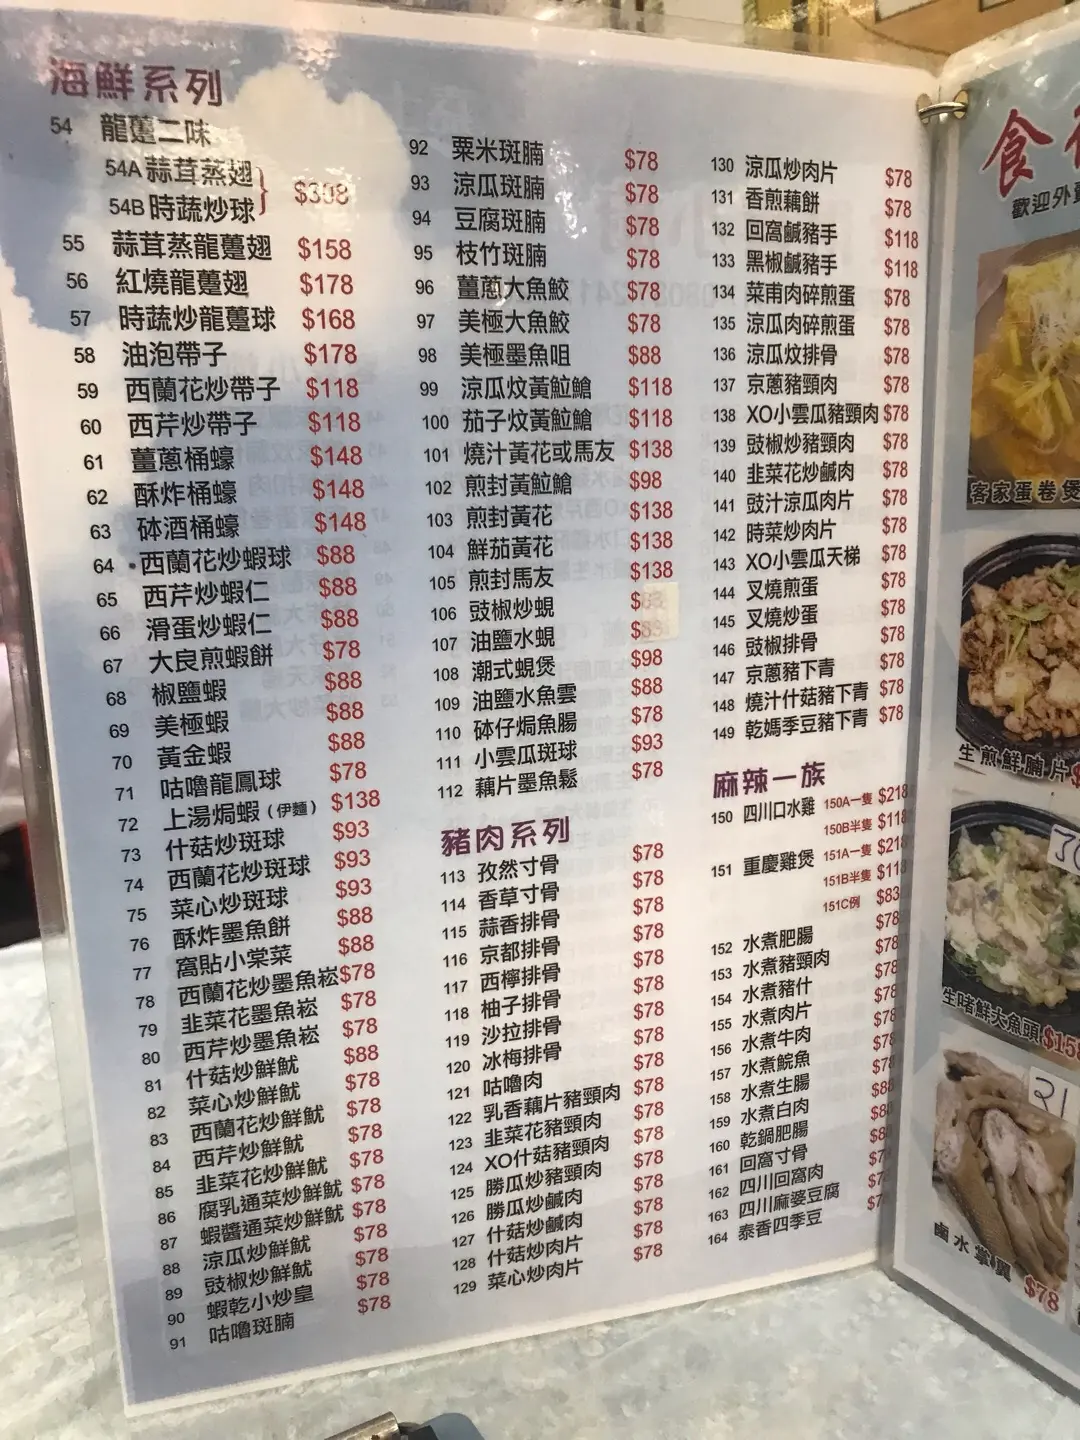 海鮮系列
54 龍躉二味
54A 蒜茸蒸翅
54B 時蔬炒球 $308
55 蒜茸蒸龍躉翅 $158
56 紅燒龍躉翅 $178
57 時蔬炒龍躉球 $168
58 油泡帶子 $178
59 西蘭花炒帶子 $118
60 西芹炒帶子 $118
61 薑蔥桶蠔 $148
62 酥炸桶蠔 $148
63 砵酒桶蠔 $148
64 西蘭花炒蝦球 $88
65 西芹炒蝦仁 $88
66 滑蛋炒蝦仁 $88
67 大良煎蝦餅 $78
68 椒鹽蝦 $88
69 美極蝦 $88
70 黃金蝦 $88
71 咕嚕龍鳳球 $78
72 上湯焗蝦(伊麵) $138
73 什菇炒斑球 $93
74 西蘭花炒斑球 $93
75 菜心炒斑球 $93
76 酥炸墨魚餅 $88
77 窩貼小棠菜 $88
78 西蘭花炒墨魚崧 $78
79 韭菜花墨魚崧 $78
80 西芹炒墨魚崧 $78
81 什菇炒鮮魷 $88
82 菜心炒鮮魷 $78
83 西蘭花炒鮮魷 $78
84 西芹炒鮮魷 $78
85 韭菜花炒鮮魷 $78
86 腐乳通菜炒鮮魷 $78
87 蝦醬通菜炒鮮魷 $78
88 涼瓜炒鮮魷 $78
89 豉椒炒鮮魷 $78
90 蝦乾小炒皇 $78
91 咕嚕斑腩 $78
92 粟米斑腩 $78
93 涼瓜斑腩 $78
94 豆腐斑腩 $78
95 枝竹斑腩 $78
96 薑蔥大魚鮫 $78
97 美極大魚鮫 $78
98 美極墨魚咀 $88
99 涼瓜炆黃䱽鱠 $118
100 茄子炆黃䱽鱠 $118
101 燒汁黃花或馬友 $138
102 煎封黃䱽鱠 $98
103 煎封黃花 $138
104 鮮茄黃花 $138
105 煎封馬友 $138
106 豉椒炒蜆
107 油鹽水蜆
108 潮式蜆煲 $98
109 油鹽水魚雲 $88
110 砵仔焗魚腸 $78
111 小雲瓜斑球 $93
112 藕片墨魚鬆 $78
豬肉系列
113 孜然寸骨 $78
114 香草寸骨 $78
115 蒜香排骨 $78
116 京都排骨 $78
117 西檸排骨 $78
118 柚子排骨 $78
119 沙拉排骨 $78
120 冰梅排骨 $78
121 咕嚕肉 $78
122 乳香藕片豬頸肉 $78
123 韭菜花豬頸肉 $78
124 XO什菇豬頸肉 $78
125 勝瓜炒豬頸肉 $78
126 勝瓜炒鹹肉 $78
127 什菇炒鹹肉 $78
128 什菇炒肉片 $78
129 菜心炒肉片 $78
130 涼瓜炒肉片 $78
131 香煎藕餅 $78
132 回窩鹹豬手 $118
133 黑椒鹹豬手 $118
134 菜甫肉碎煎蛋 $78
135 涼瓜肉碎煎蛋 $78
136 涼瓜炆排骨 $78
137 京蔥豬頸肉 $78
138 XO小雲瓜豬頸肉 $78
139 豉椒炒豬頸肉 $78
140 韭菜花炒鹹肉 $78
141 豉汁涼瓜肉片 $78
142 時菜炒肉片 $78
143 XO小雲瓜天梯 $78
144 叉燒煎蛋 $78
145 叉燒炒蛋 $78
146 豉椒排骨 $78
147 京蔥豬下青 $78
148 燒汁什菇豬下青 $78
149 乾媽季豆豬下青 $78
麻辣一族
150 四川口水雞 150A一隻 $218
150B半隻 $118
151 重慶雞煲 151A一隻 $218
151B半隻 $118
151C例 $83
152 水煮肥腸 $78
153 水煮豬頸肉 $78
154 水煮豬什 $78
155 水煮肉片 $78
156 水煮牛肉 $78
157 水煮鯇魚
158 水煮生腸
159 水煮白肉
160 乾鍋肥腸
161 回窩寸骨
162 四川回窩肉
163 四川麻婆豆腐
164 泰香四季豆
食
歡迎外
客家蛋卷煲
生煎鮮腩片
生啫鮮大魚頭 $158
21
鹵水掌翼 $78